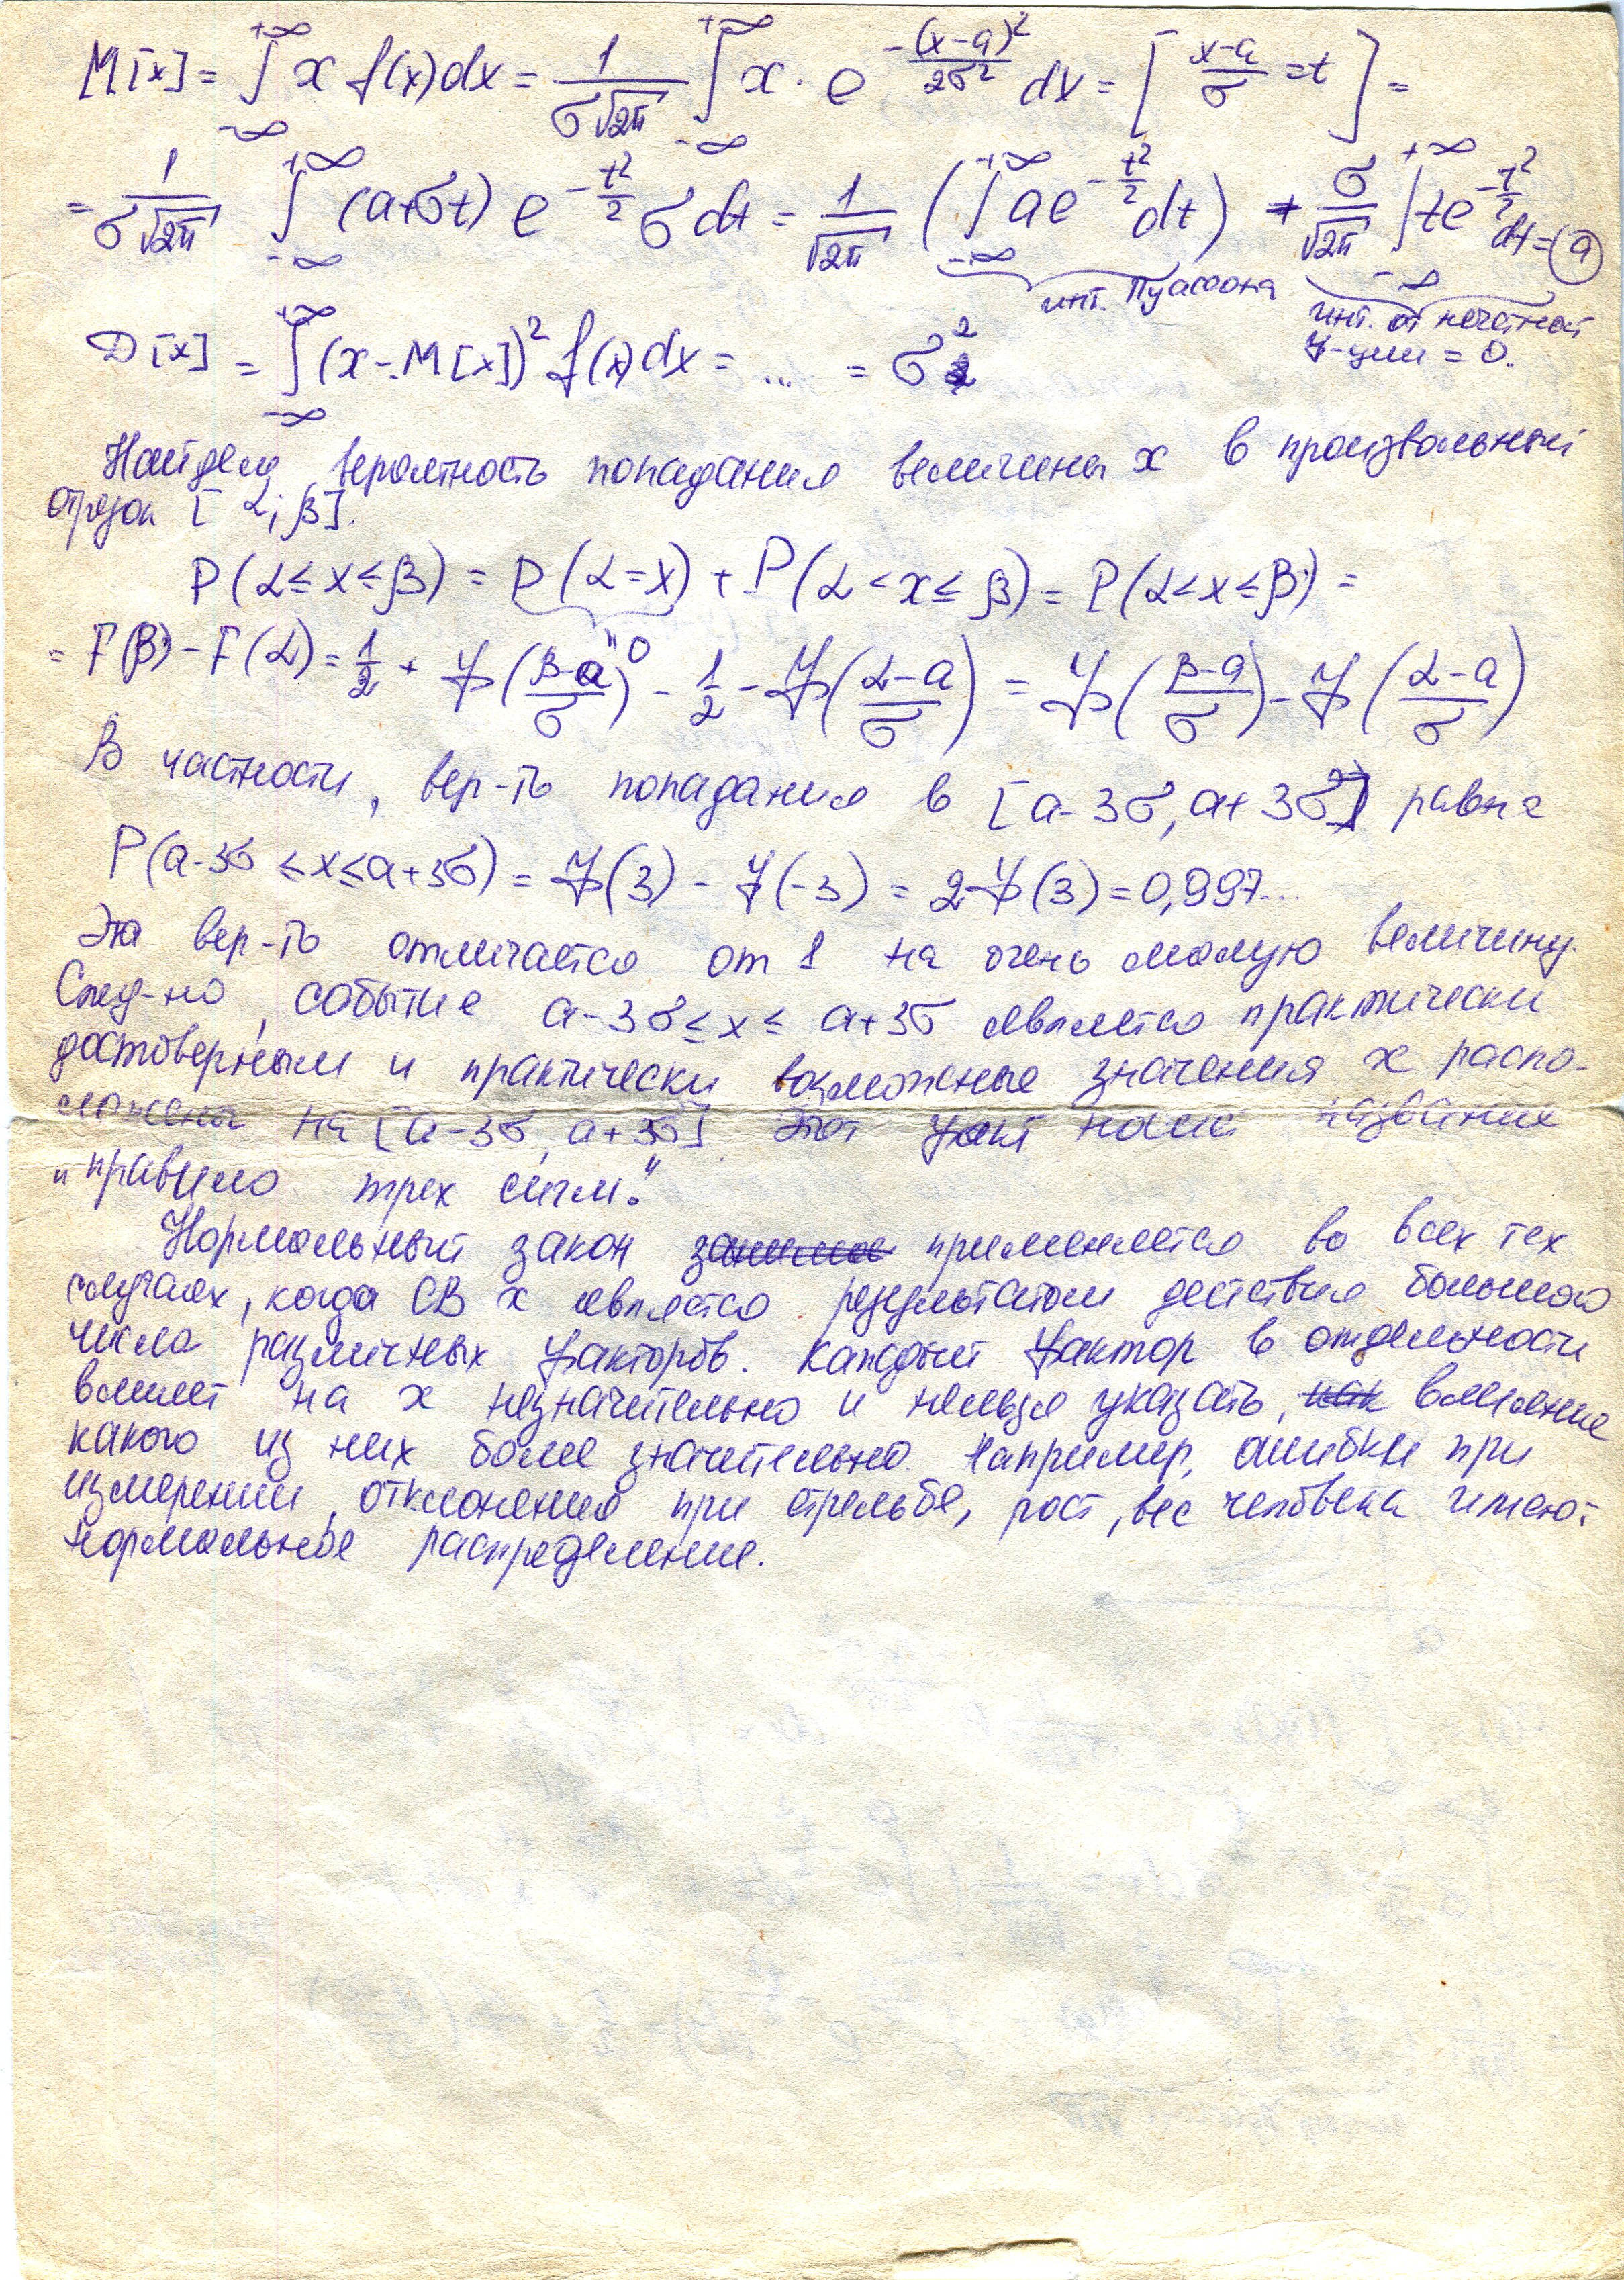 M[x] = ∫_{-∞}^{+∞} x f(x)dx = 1/(σ√2π) ∫_{-∞}^{+∞} x · e^{-(x-a)²/2σ²} dx = [ (x-a)/σ = t ] =
= 1/(σ√2π) ∫_{-∞}^{+∞} (a+σt) e^{-t²/2} σ dt = 1/√2π ( ∫_{-∞}^{+∞} a e^{-t²/2} dt ) + σ/√2π ∫_{-∞}^{+∞} t e^{-t²/2} dt = a
инт. Пуассона
инт. от нечетной
ф-ции = 0.
D[x] = ∫_{-∞}^{+∞} (x - M[x])² f(x) dx = ... = σ²
Найдем вероятность попадания величины x в произвольный
отрезок [α; β].
P(α ≤ x ≤ β) = P(α = x) + P(α < x ≤ β) = P(α < x ≤ β) =
" 0
= F(β) - F(α) = 1/2 + ф((β-a)/σ) - 1/2 - ф((α-a)/σ) = ф((β-a)/σ) - ф((α-a)/σ)
В частности, вер-ть попадания в [a-3σ, a+3σ] равна
P(a-3σ ≤ x ≤ a+3σ) = ф(3) - ф(-3) = 2ф(3) = 0,997...
Эта вер-ть отличается от 1 на очень малую величину.
След-но, событие a-3σ ≤ x ≤ a+3σ является практически
достоверным и практически возможные значения x распо-
ложены на [a-3σ, a+3σ]. Этот факт носит название
"правило трех сигм."
Нормальный закон применяется во всех тех
случаях, когда СВ x является результатом действия большого
числа различных факторов. Каждый фактор в отдельности
влияет на x незначительно и нельзя указать, влияние
какого из них более значительно. Например, ошибки при
измерении, отклонения при стрельбе, рост, вес человека имеют
нормальное распределение.